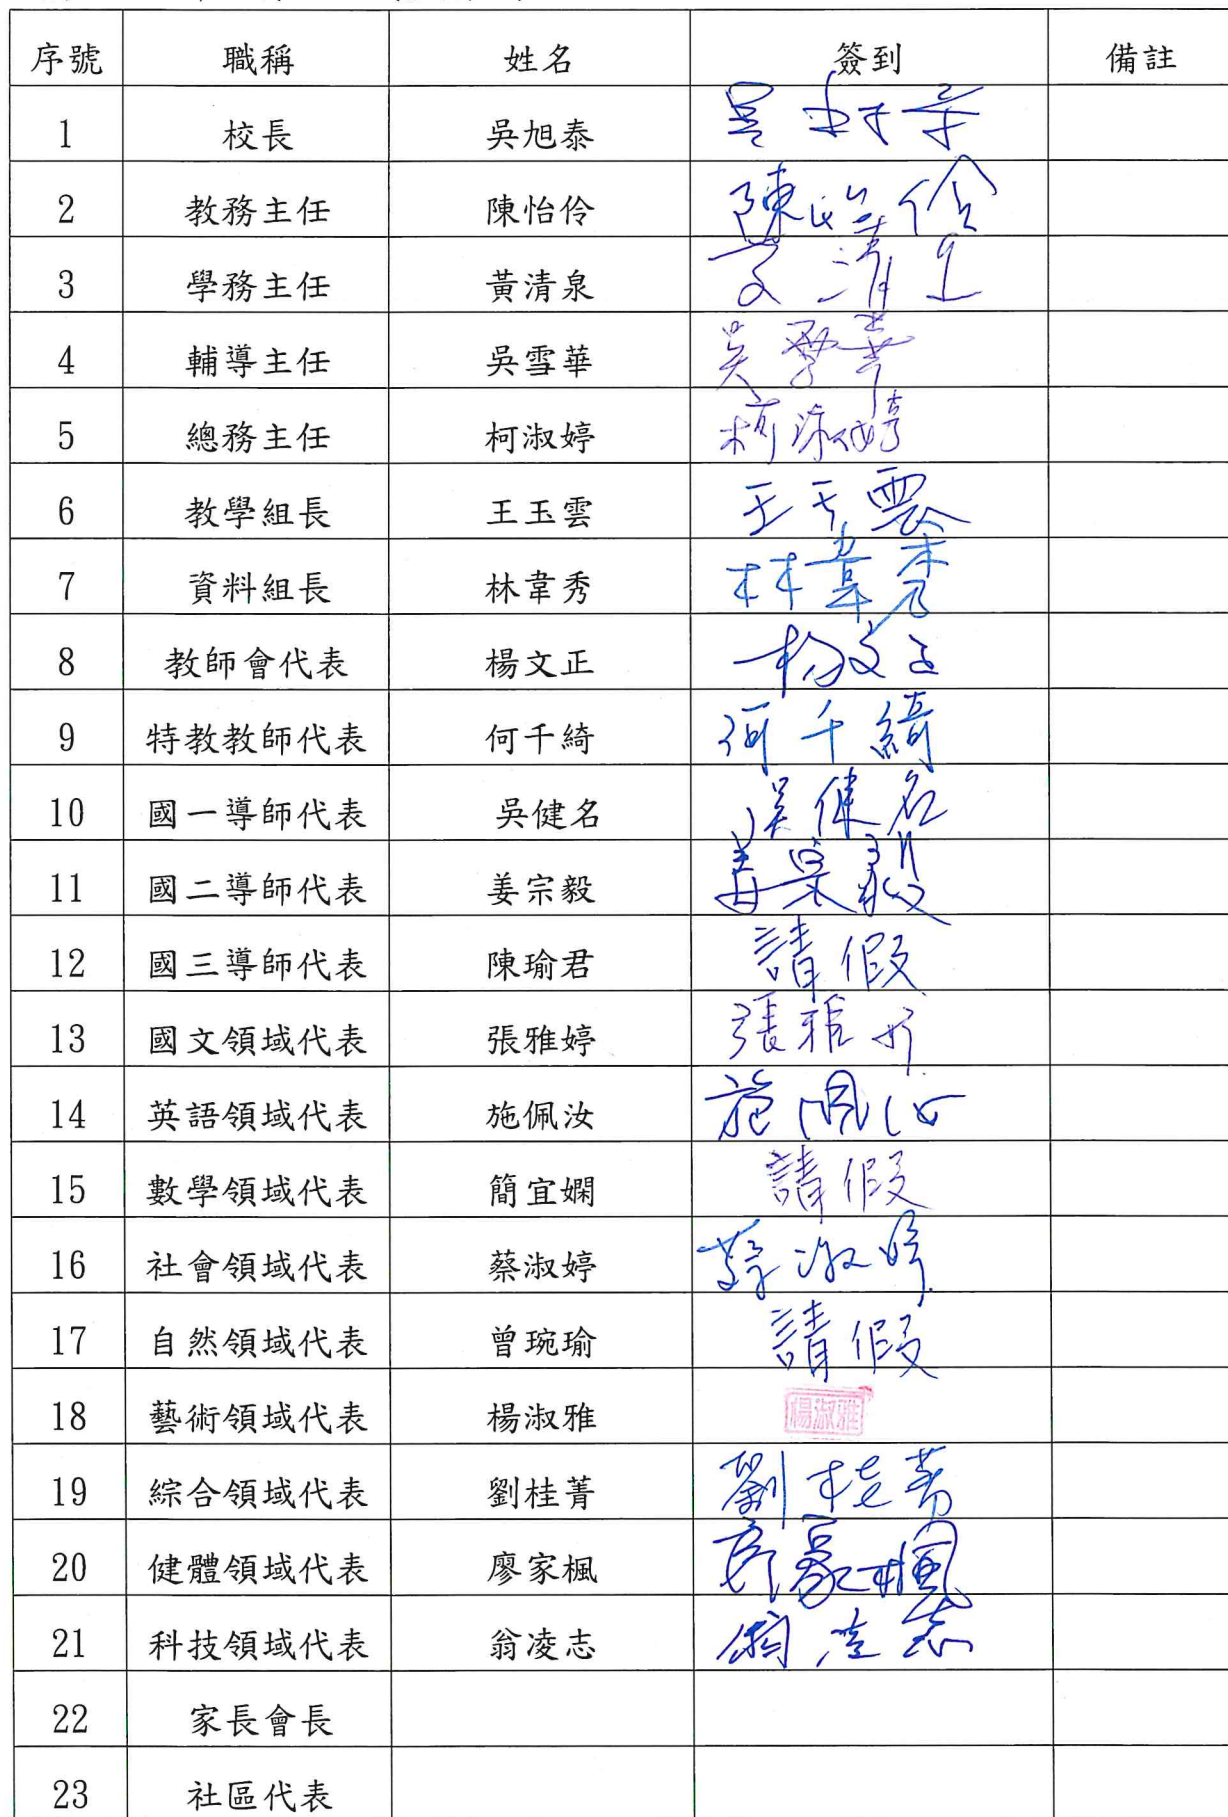 序號 職稱 姓名 簽到 備註
1 校長 吳旭泰
2 教務主任 陳怡伶 陳怡伶
3 學務主任 黃清泉
4 輔導主任 吳雪華 吳雪華
5 總務主任 柯淑婷 柯淑婷
6 教學組長 王玉雲 王玉雲
7 資料組長 林韋秀 林韋秀
8 教師會代表 楊文正 楊文正
9 特教教師代表 何千綺 何千綺
10 國一導師代表 吳健名 吳健名
11 國二導師代表 姜宗毅 姜宗毅
12 國三導師代表 陳瑜君 請假
13 國文領域代表 張雅婷 張雅婷
14 英語領域代表 施佩汝 施佩汝
15 數學領域代表 簡宜嫻 請假
16 社會領域代表 蔡淑婷 蔡淑婷
17 自然領域代表 曾琬瑜 請假
18 藝術領域代表 楊淑雅 楊淑雅
19 綜合領域代表 劉桂菁 劉桂菁
20 健體領域代表 廖家楓 廖家楓
21 科技領域代表 翁凌志 翁凌志
22 家長會長
23 社區代表